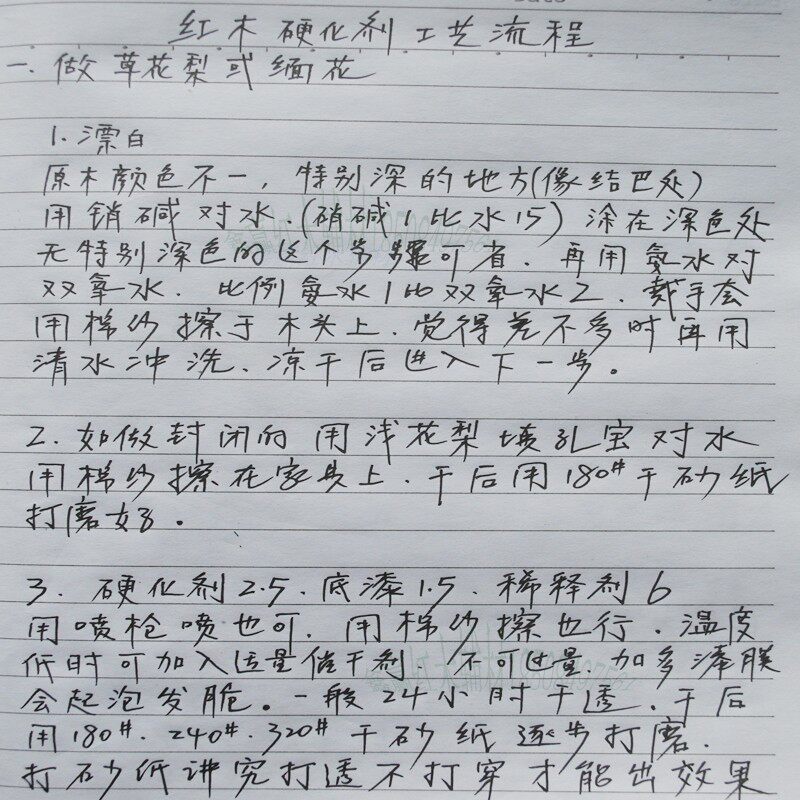 红木硬化剂工艺流程
一.做草花梨或缅花
1.漂白
原木颜色不一,特别深的地方(像结巴处)
用销碱对水.(硝碱1比水15)涂在深色处
无特别深色的这个步骤可省.再用氨水对
双氧水.比例氨水1比双氧水2.戴手套
用棉纱擦于木头上.觉得差不多时再用
清水冲洗、凉干后进入下一步。
2.如做封闭的用浅花梨填孔宝对水
用棉纱擦在家具上.干后用180#干砂纸
打磨好。
3.硬化剂2.5.底漆1.5.稀释剂6
用喷枪喷也可.用棉纱擦也行.温度
低时可加入适量催干剂.不可过量.加多漆膜
会起泡发脆。一般24小时干透.干后
用180#.240#.320#干砂纸逐步打磨.
打砂纸讲究打透不打穿才能出效果